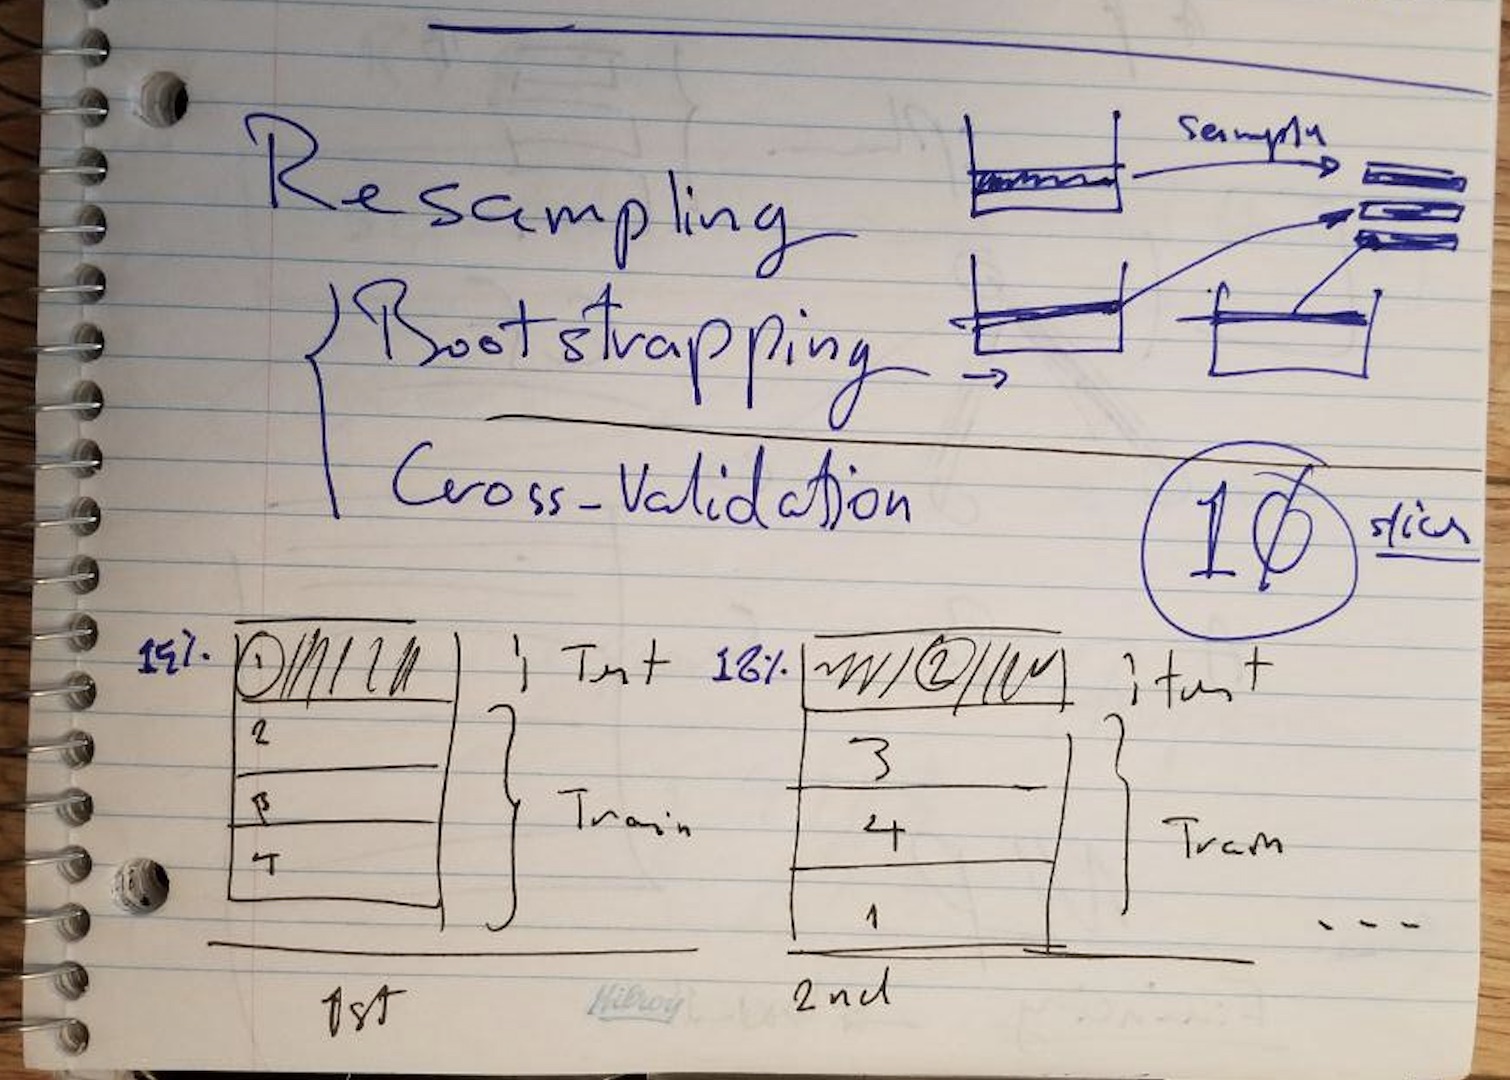 sample
Resampling
Bootstrapping →
Cross-Validation
10 slices
15%. 1 } Test
2
3
4
Train
1st
18%. 2 } test
3
4
1
Train
...
2nd
Hilroy